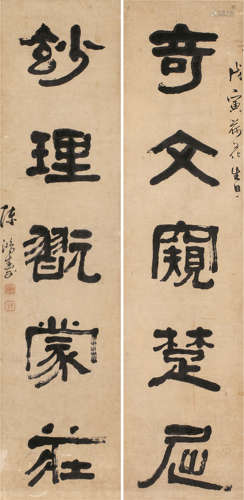 戊寅荷花生日
奇文窺楚屈
玅理翫蒙莊
陳鴻壽